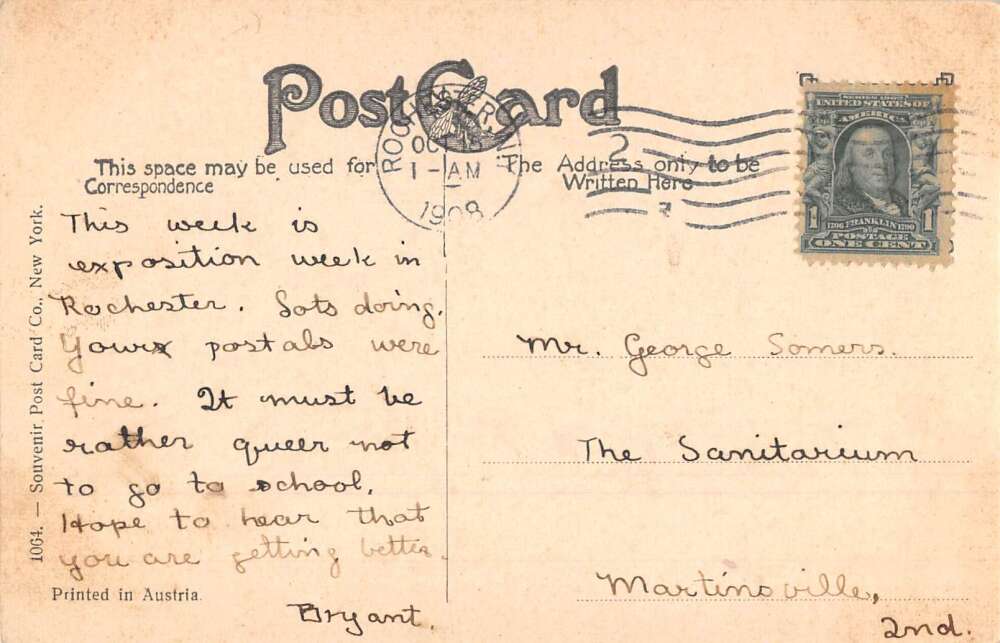 Post Card
ROCHESTER, N.Y.
OCT 15
1-AM
1908
2
SERIES 1902
UNITED STATES OF
AMERICA
1 1
1706 FRANKLIN 1790
POSTAGE
ONE CENT
This space may be used for
Correspondence
The Address only to be
Written Here
This week is
exposition week in
Rochester. Lots doing.
Yours postals were
fine. It must be
rather queer not
to go to school.
Hope to hear that
you are getting better.
Bryant.
Mr. George Somers.
The Sanitarium
Martinsville,
Ind.
1064. — Souvenir Post Card Co., New York.
Printed in Austria.